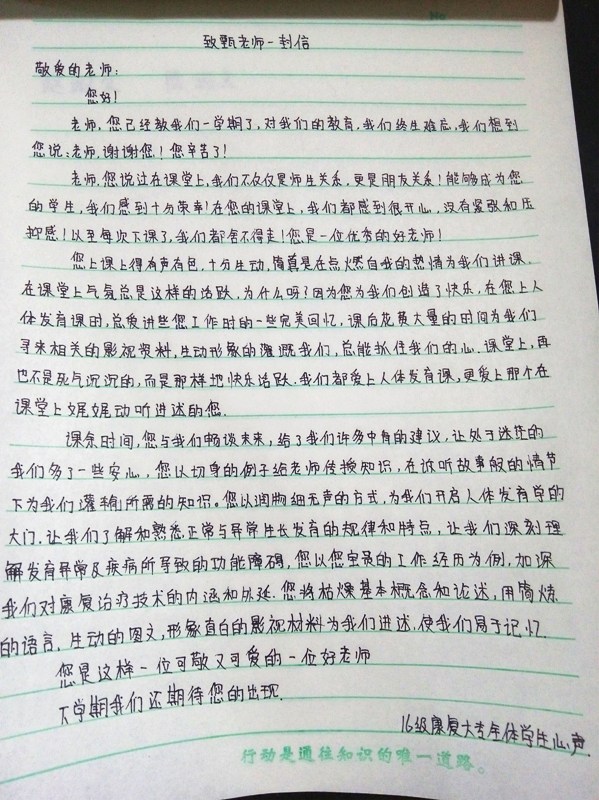 No
致甄老师一封信
敬爱的老师:
您好!
老师,您已经教我们一学期了,对我们的教育,我们终生难忘,我们想到
您说:老师,谢谢您!您辛苦了!
老师,您说过在课堂上,我们不仅仅是师生关系,更是朋友关系!能够成为您
的学生,我们感到十分荣幸!在您的课堂上,我们都感到很开心,没有紧张和压
抑感!以至每次下课了,我们都舍不得走!您是一位优秀的好老师!
您上课上得有声有色,十分生动,简直是在点燃自我的热情为我们讲课.
在课堂上气氛总是这样的活跃,为什么吗?因为您为我们创造了快乐,在您上人
体发育课时,总爱讲些您工作时的一些完美回忆,课后花费大量的时间为我们
寻来相关的影视资料,生动形象的灌溉我们,总能抓住我们的心.课堂上,再
也不是死气沉沉的,而是那样地快乐活跃.我们都爱上人体发育课,更爱上那个在
课堂上娓娓动听讲述的您.
课余时间,您与我们畅谈未来,给了我们许多中肯的建议,让处于迷茫的
我们多了一些安心,您以切身的例子给老师传授知识,在诉听故事般的情节
下为我们灌输所需的知识。您以润物细无声的方式,为我们开启人体发育学的
大门.让我们了解和熟悉正常与异常生长发育的规律和特点,让我们深刻理
解发育异常及疾病所导致的功能障碍,您以您宝贵的工作经历为例,加深
我们对康复治疗技术的内涵和外延.您将枯燥基本概念和论述,用简炼
的语言,生动的图文,形象直白的影视材料为我们讲述,使我们易于记忆.
您是这样一位可敬又可爱的一位好老师
下学期我们还期待您的出现.
16级康复大专全体学生心声
行动是通往知识的唯一道路。